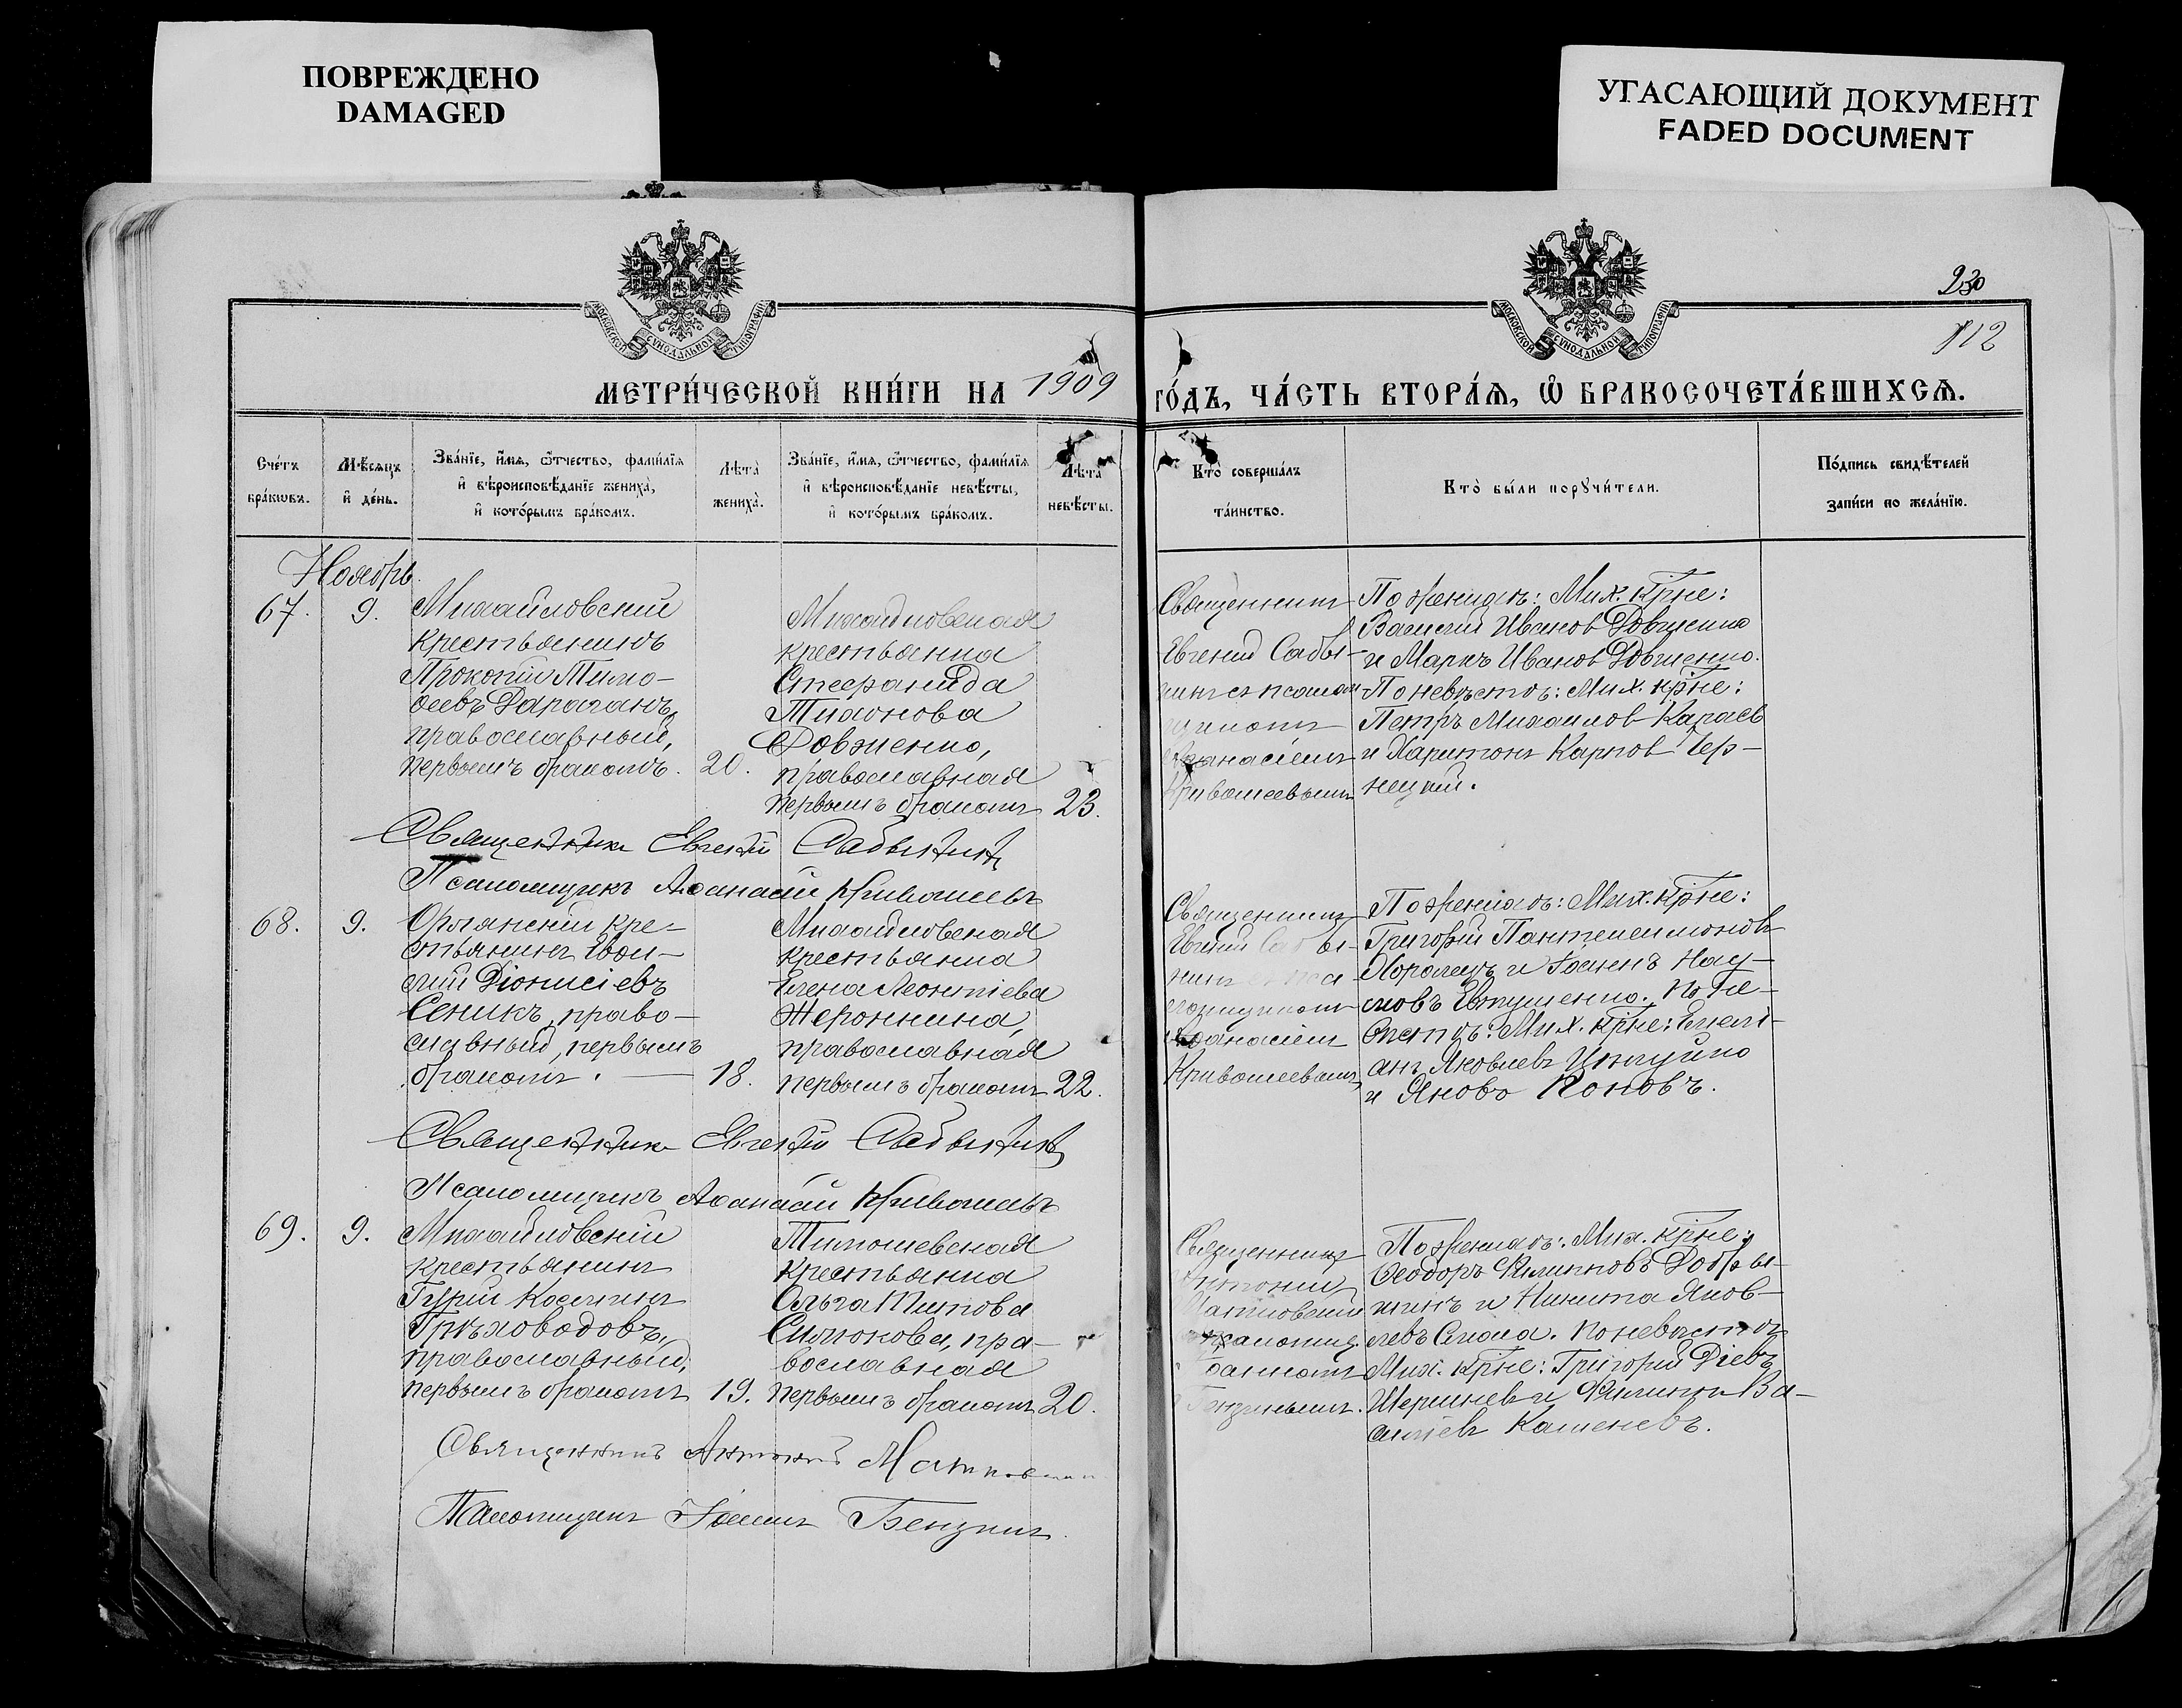 ПОВРЕЖДЕНО
DAMAGED
УГАСАЮЩИЙ ДОКУМЕНТ
FADED DOCUMENT
МОСКОВСКОЙ СѴНОДАЛЬНОЙ ТИПОГРАФІИ
МОСКОВСКОЙ СѴНОДАЛЬНОЙ ТИПОГРАФІИ
230
112
МЕТРИ́ЧЕСКОЙ КНИ́ГИ НА 1909 ГО́ДЪ, ЧА́СТЬ ВТОРА́Ѧ, Ѽ БРАКОСОЧЕТА́ВШИХСѦ.
Сче́тъ
бра́кѡвъ.
Мѣ́сяцъ
и҆ де́нь.
Зва́нїе, и҆́мя, ѻ҆́тчество, фами́лїя
и҆ вѣроисповѣ́данїе жениха̀,
и҆ кото́рымъ бра́комъ.
Лѣта̀
жениха̀.
Зва́нїе, и҆́мя, ѻ҆́тчество, фами́лїя
и҆ вѣроисповѣ́данїе невѣ́сты,
и҆ кото́рымъ бра́комъ.
Лѣта̀
невѣ́сты.
Кто̀ соверша́лъ
та́инство.
Кто̀ бы́ли порꙋчи́тели.
По́дпись свидѣ́телей
за́писи по жела́нїю.
Ноябрь.
67.
9.
Михайловскій
крестьянинъ
Прокопій Тимо-
ѳеевъ Дараганъ,
православный,
первымъ бракомъ.
20.
Михайловская
крестьянка
Стефанида
Тихонова
Довженко,
православная
первымъ бракомъ
23.
Священникъ
Евгеній Сабы-
нинъ съ псалом
щикомъ
Аѳанасіемъ
Кривошеевымъ
По женихѣ: Мих. кр̃не:
Василій Ивановъ Довженко
и Маркъ Ивановъ Довженко.
По невѣстѣ: Мих. кр̃не:
Петръ Михаиловъ Караев
и Харитонъ Карповъ Чер-
нецкій.
Священникъ Евгеній Сабынинъ
Псаломщикъ Аѳанасій Кривошеевъ
68.
9.
Орлянскій кре-
стьянинъ
Діонисіевъ
Сеникъ, право-
славный, первымъ
бракомъ.
18.
Михайловская
крестьянка
Елена Леонтіева
православная
первымъ бракомъ
22.
Священникъ
Евгеній Сабы-
нинъ
Аѳанасіемъ
Кривошеевымъ
По женихѣ: Мих. кр̃не:
Григорій Пантелеимоновъ
и Іоаннъ Нау-
мовъ Евтушенко. По не-
вѣстѣ: Мих. кр̃не: Емелі-
анъ Яковлевъ
и Яковъ Поповъ.
Священникъ Евгеній Сабынинъ
Псаломщикъ Аѳанасій Кривошеевъ
69.
9.
Михайловскій
крестьянинъ
Гурій Косминъ
Грѣховодовъ,
православный,
первымъ бракомъ
19.
Тимошевская
крестьянка
Ольга Титова
Симонова, пра-
вославная
первымъ бракомъ
20.
Священникъ
Антоній
По женихѣ: Мих. кр̃не:
Ѳеодоръ Филипповъ Добры-
нинъ и Никита Яков-
левъ По невѣстѣ
Мих. кр̃не: Григорій Діевъ
и Филиппъ Ва-
силіевъ Кашеневъ.
Священникъ Антоній
Псаломщикъ Іоаннъ Бензинъ.